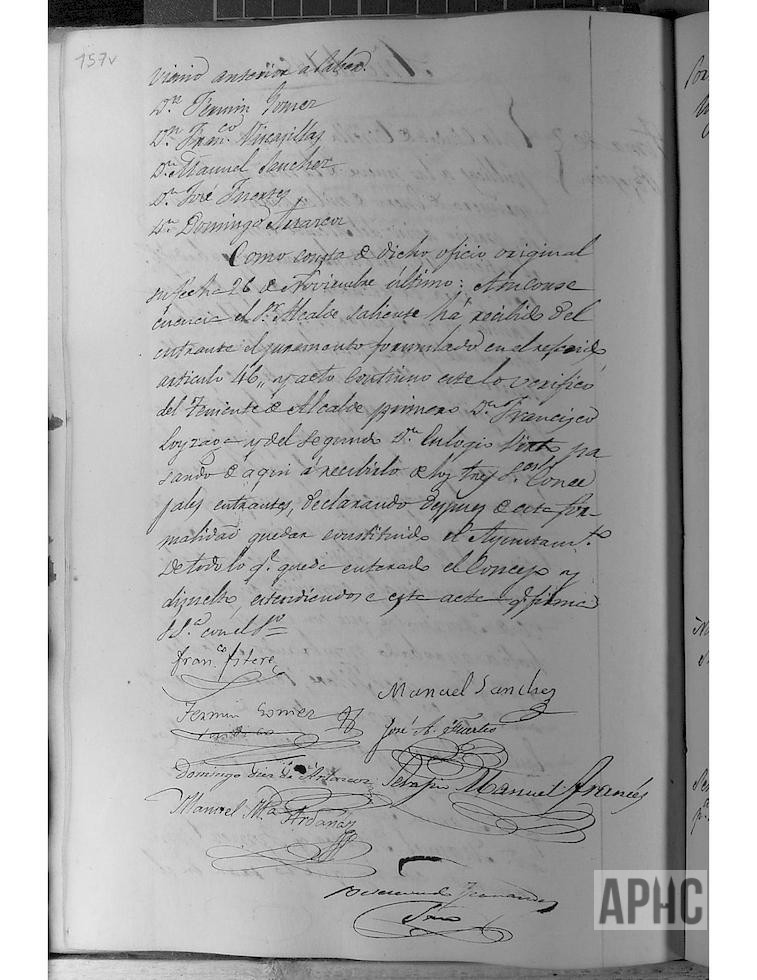 157v
anterior á saber.
Dn Fermin Gomez
Dn Franco
Dn Manuel Sanchez
Dn José Fuertes
Dn Domingo
Como consta de dicho oficio original
su fecha 26 de Noviembre último: En conse
cuencia el Sr Alcalde saliente há recibido del
entrante el juramento formulado en el referido
articulo 46,, y acto continuo este lo verificó
del Teniente de Alcalde primero Dn Francisco
y del segundo Dn Eulogio pa
sando de aqui á recibirlo de los tres Sres Conce
jales entrantes, declarando despues de esta for-
malidad quedar constituido el Ayuntamto
De todo lo q.e queda enterado el Concejo y
disuelto, estendiendose este acta q.e firma
S S.a con el Srio
Franco Fiteré
Manuel Sanchez
Fermin Gomez
José A. Fuertes
Domingo Diez de
Serapio Manuel Francés
Manuel Ma Ardanaz
Fernandez
Srio
APHC